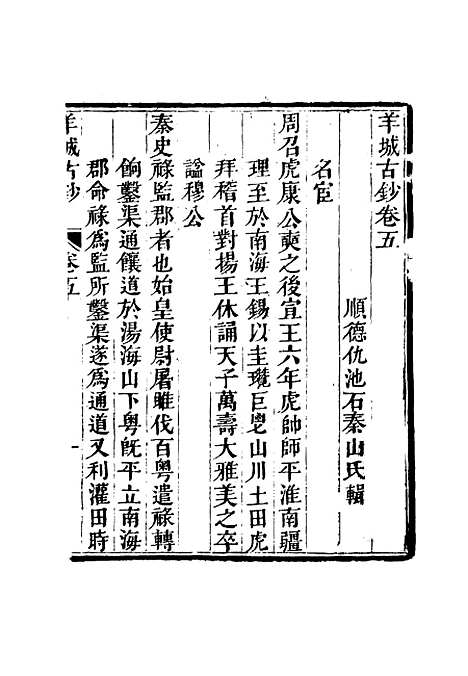 羊城古鈔卷五
順德仇池石秦山氏輯
名宦
周召虎康公奭之後宣王六年虎帥師平淮南疆
理至於南海王錫以圭瓚巨鬯山川土田虎
拜稽首對揚王休誦天子萬壽大雅美之卒
諡穆公
秦史祿監郡者也始皇使尉屠雎伐百粤遣祿轉
餉鑿渠通饟道於湯海山下粤既平立南海
郡命祿爲監所鑿渠遂爲通道又利灌田時
羊城古鈔 卷五 一